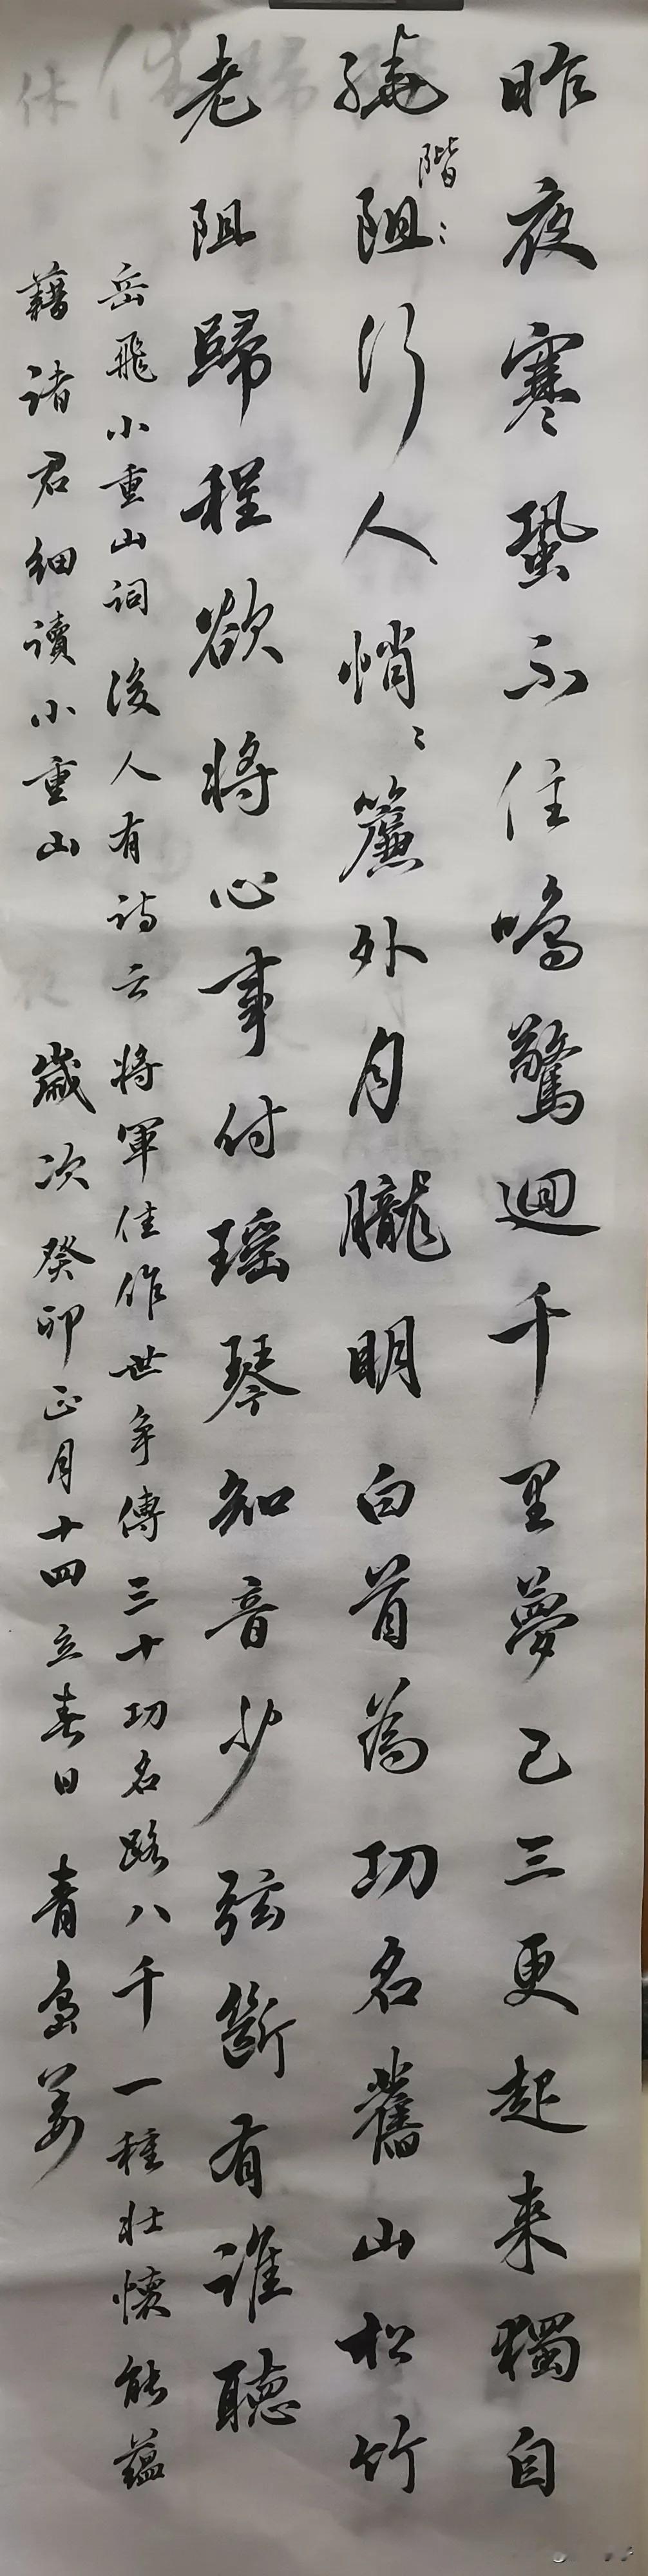 昨夜寒蛩不住鳴驚迴千里夢已三更起来獨自
繞阻:行人悄:簾外月朧明白首為功名舊山松竹
階
老阻歸程欲將心事付瑶琴知音少弦斷有誰聽
岳飛小重山詞後人有詩云將軍佳作世争傳三十功名路八千一種壯懷能蘊
藉诸君细讀小重山 歲次癸卯正月十四立春日 青島姜